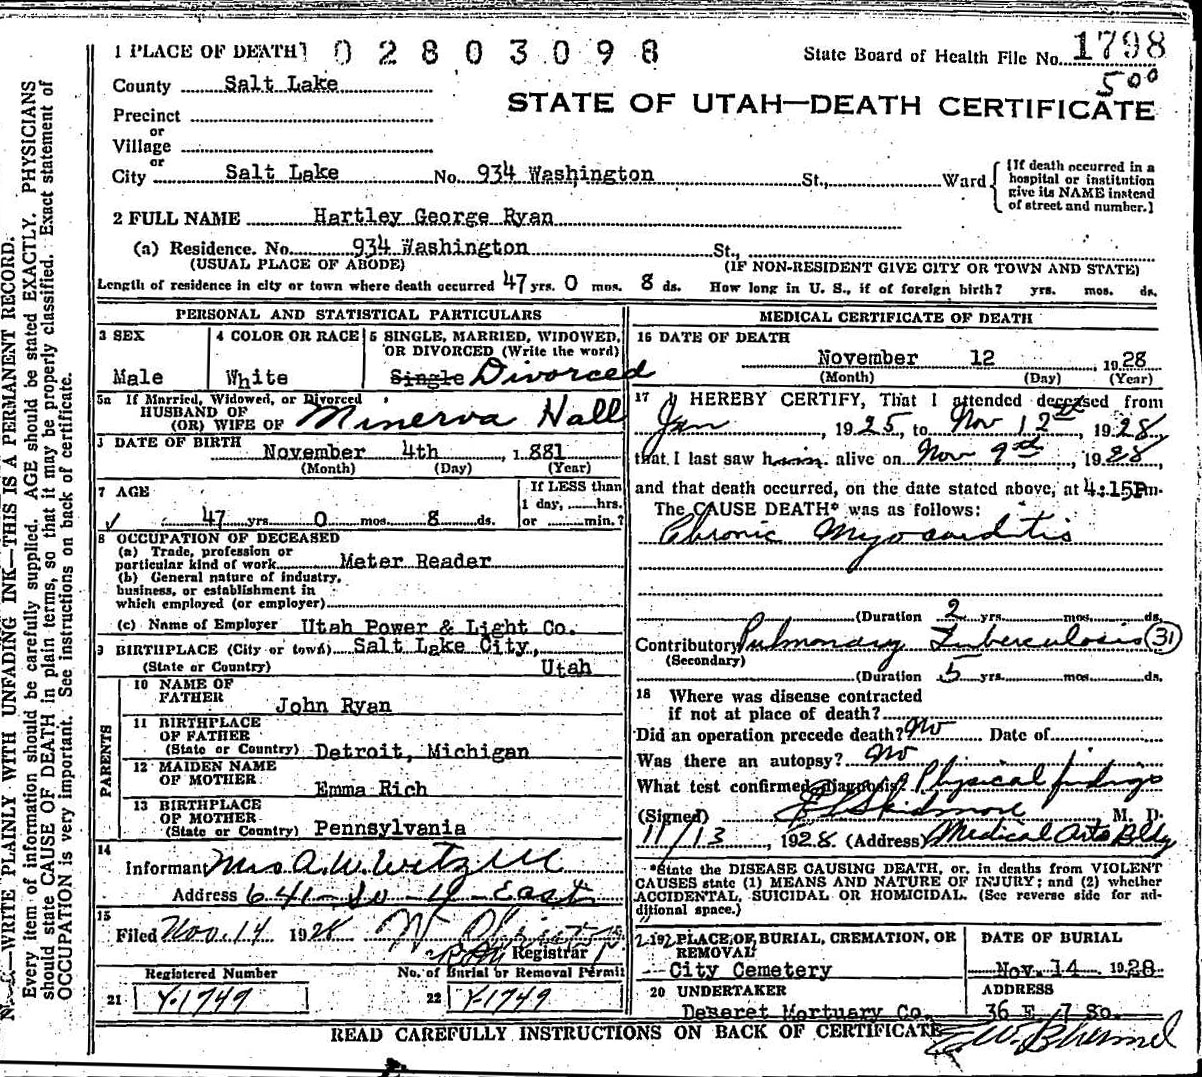 1 PLACE OF DEATH 02803098 State Board of Health File No. 1798
County Salt Lake 5 00
STATE OF UTAH—DEATH CERTIFICATE
Precinct
or
Village
or
City Salt Lake No. 934 Washington St., Ward {[If death occurred in a hospital or institution give its NAME instead of street and number.]
2 FULL NAME Hartley George Ryan
(a) Residence. No. 934 Washington St.,
(USUAL PLACE OF ABODE) (IF NON-RESIDENT GIVE CITY OR TOWN AND STATE)
Length of residence in city or town where death occurred 47 yrs. 0 mos. 8 ds. How long in U. S., if of foreign birth? yrs. mos. ds.
PERSONAL AND STATISTICAL PARTICULARS
3 SEX
Male
4 COLOR OR RACE
White
5 SINGLE, MARRIED, WIDOWED,
OR DIVORCED (Write the word)
Single Divorced
5a If Married, Widowed, or Divorced
HUSBAND OF
(OR) WIFE OF Minerva Hall
DATE OF BIRTH
November 4th, 1881
(Month) (Day) (Year)
7 AGE
47 yrs. 0 mos. 8 ds.
If LESS than
1 day, hrs.
or min.?
8 OCCUPATION OF DECEASED
(a) Trade, profession or
particular kind of work Meter Reader
(b) General nature of industry,
business, or establishment in
which employed (or employer)
(c) Name of Employer Utah Power & Light Co.
9 BIRTHPLACE (City or town) Salt Lake City,
(State or Country) Utah
PARENTS
10 NAME OF
FATHER John Ryan
11 BIRTHPLACE
OF FATHER
(State or Country) Detroit, Michigan
12 MAIDEN NAME
OF MOTHER Emma Rich
13 BIRTHPLACE
OF MOTHER
(State or Country) Pennsylvania
14
Informant Mrs A. W. Wetzell
Address 641-So-4-East
15
Filed Nov. 14 1928
Registrar
Registered Number No. of Burial or Removal Permit
21 Y-1749 22 Y-1749
MEDICAL CERTIFICATE OF DEATH
16 DATE OF DEATH
November 12 1928
(Month) (Day) (Year)
17 I HEREBY CERTIFY, That I attended deceased from
Jan, 1925, to Nov 12th, 1928,
that I last saw him alive on Nov 9th, 1928,
and that death occurred, on the date stated above, at 4:15Pm.
The CAUSE DEATH* was as follows:
Chronic Myocarditis
(Duration 2 yrs. mos. ds.
Contributory Pulmonary Tuberculosis (31)
(Secondary)
(Duration 5 yrs. mos. ds.
18 Where was disease contracted
if not at place of death?
Did an operation precede death? No Date of
Was there an autopsy? No
What test confirmed diagnosis? Physical findings
(Signed) Skidmore M. D.
11/13, 1928. (Address) Medical Arts Bldg
*State the DISEASE CAUSING DEATH, or, in deaths from VIOLENT
CAUSES state (1) MEANS AND NATURE OF INJURY; and (2) whether
ACCIDENTAL, SUICIDAL OR HOMICIDAL. (See reverse side for ad-
ditional space.)
PLACE OF BURIAL, CREMATION, OR
REMOVAL
City Cemetery
DATE OF BURIAL
Nov. 14 1928
20 UNDERTAKER
Deseret Mortuary Co.
ADDRESS
36 E. 7 So.
READ CAREFULLY INSTRUCTIONS ON BACK OF CERTIFICATE
N. B.—WRITE PLAINLY WITH UNFADING INK—THIS IS A PERMANENT RECORD.
Every item of information should be carefully supplied. AGE should be stated EXACTLY. PHYSICIANS
should state CAUSE OF DEATH in plain terms, so that it may be properly classified. Exact statement of
OCCUPATION is very important. See instructions on back of certificate.